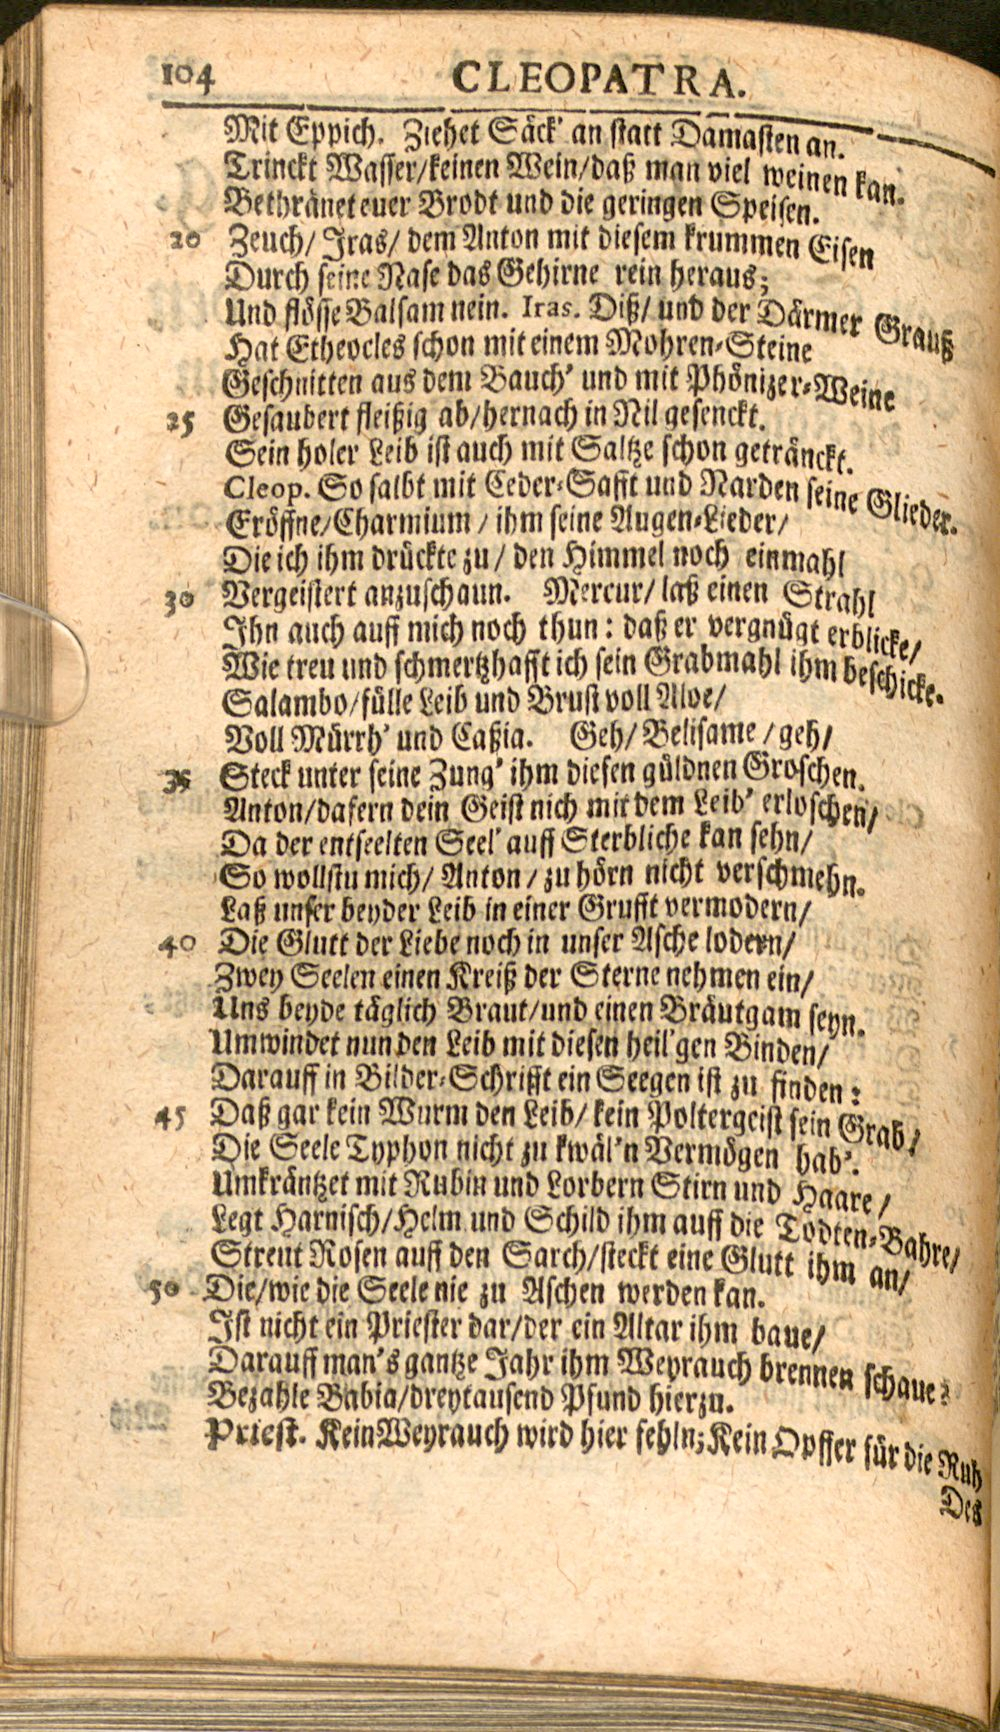 104 CLEOPATRA.
Mit Eppich. Ziehet Säck' an statt Damasten an.
Trinckt Wasser/keinen Wein/daß man viel weinen kan.
Bethränet euer Brodt und die geringen Speisen.
20 Zeuch/ Iras/ dem Anton mit diesem krummen Eisen
Durch seine Nase das Gehirne rein heraus;
Und flösse Balsam nein. Iras. Diß/ und der Därmer Grauß
Hat Etheocles schon mit einem Mohren-Steine
Geschnitten aus dem Bauch' und mit Phönizer-Weine
25 Gesaubert fleißig ab/hernach in Nil gesenckt.
Sein holer Leib ist auch mit Saltze schon getränckt.
Cleop. So salbt mit Ceder-Safft und Narden seine Glieder.
Eröffne/Charmium/ ihm seine Augen-Lieder/
Die ich ihm drückte zu/ den Himmel noch einmahl
30 Vergeistert anzuschaun. Mercur/ laß einen Strahl
Ihn auch auff mich noch thun: daß er vergnügt erblicke/
Wie treu und schmertzhafft ich sein Grabmahl ihm beschicke.
Salambo/fülle Leib und Brust voll Aloe/
Voll Mürrh' und Caßia. Geh/ Belisame/geh/
35 Steck unter seine Zung' ihm diesen güldnen Groschen.
Anton/dafern dein Geist nich mit dem Leib' erloschen/
Da der entseelten Seel' auff Sterbliche kan sehn/
So wollstu mich/ Anton/ zu hörn nicht verschmehn.
Laß unser beyder Leib in einer Grufft vermodern/
40 Die Glutt der Liebe noch in unser Asche lodern/
Zwey Seelen einen Kreiß der Sterne nehmen ein/
Uns beyde täglich Braut/und einen Bräutgam seyn.
Umwindet nun den Leib mit diesen heil'gen Binden/
Darauff in Bilder-Schrifft ein Seegen ist zu finden:
45 Daß gar kein Wurm den Leib/ kein Poltergeist sein Grab/
Die Seele Typhon nicht zu kwäl'n Vermögen hab'.
Umkräntzet mit Rubin und Lorbern Stirn und Haare/
Legt Harnisch/Helm und Schild ihm auff die Todten-Bahre/
Streut Rosen auff den Sarch/steckt eine Glutt ihm an/
50 Die/wie die Seele nie zu Aschen werden kan.
Ist nicht ein Priester dar/der ein Altar ihm baue/
Darauff man's gantze Jahr ihm Weyrauch brennen schaue?
Bezahle Babia/dreytausend Pfund hierzu.
Priest. Kein Weyrauch wird hier fehln; Kein Opffer für die Ruh
Des